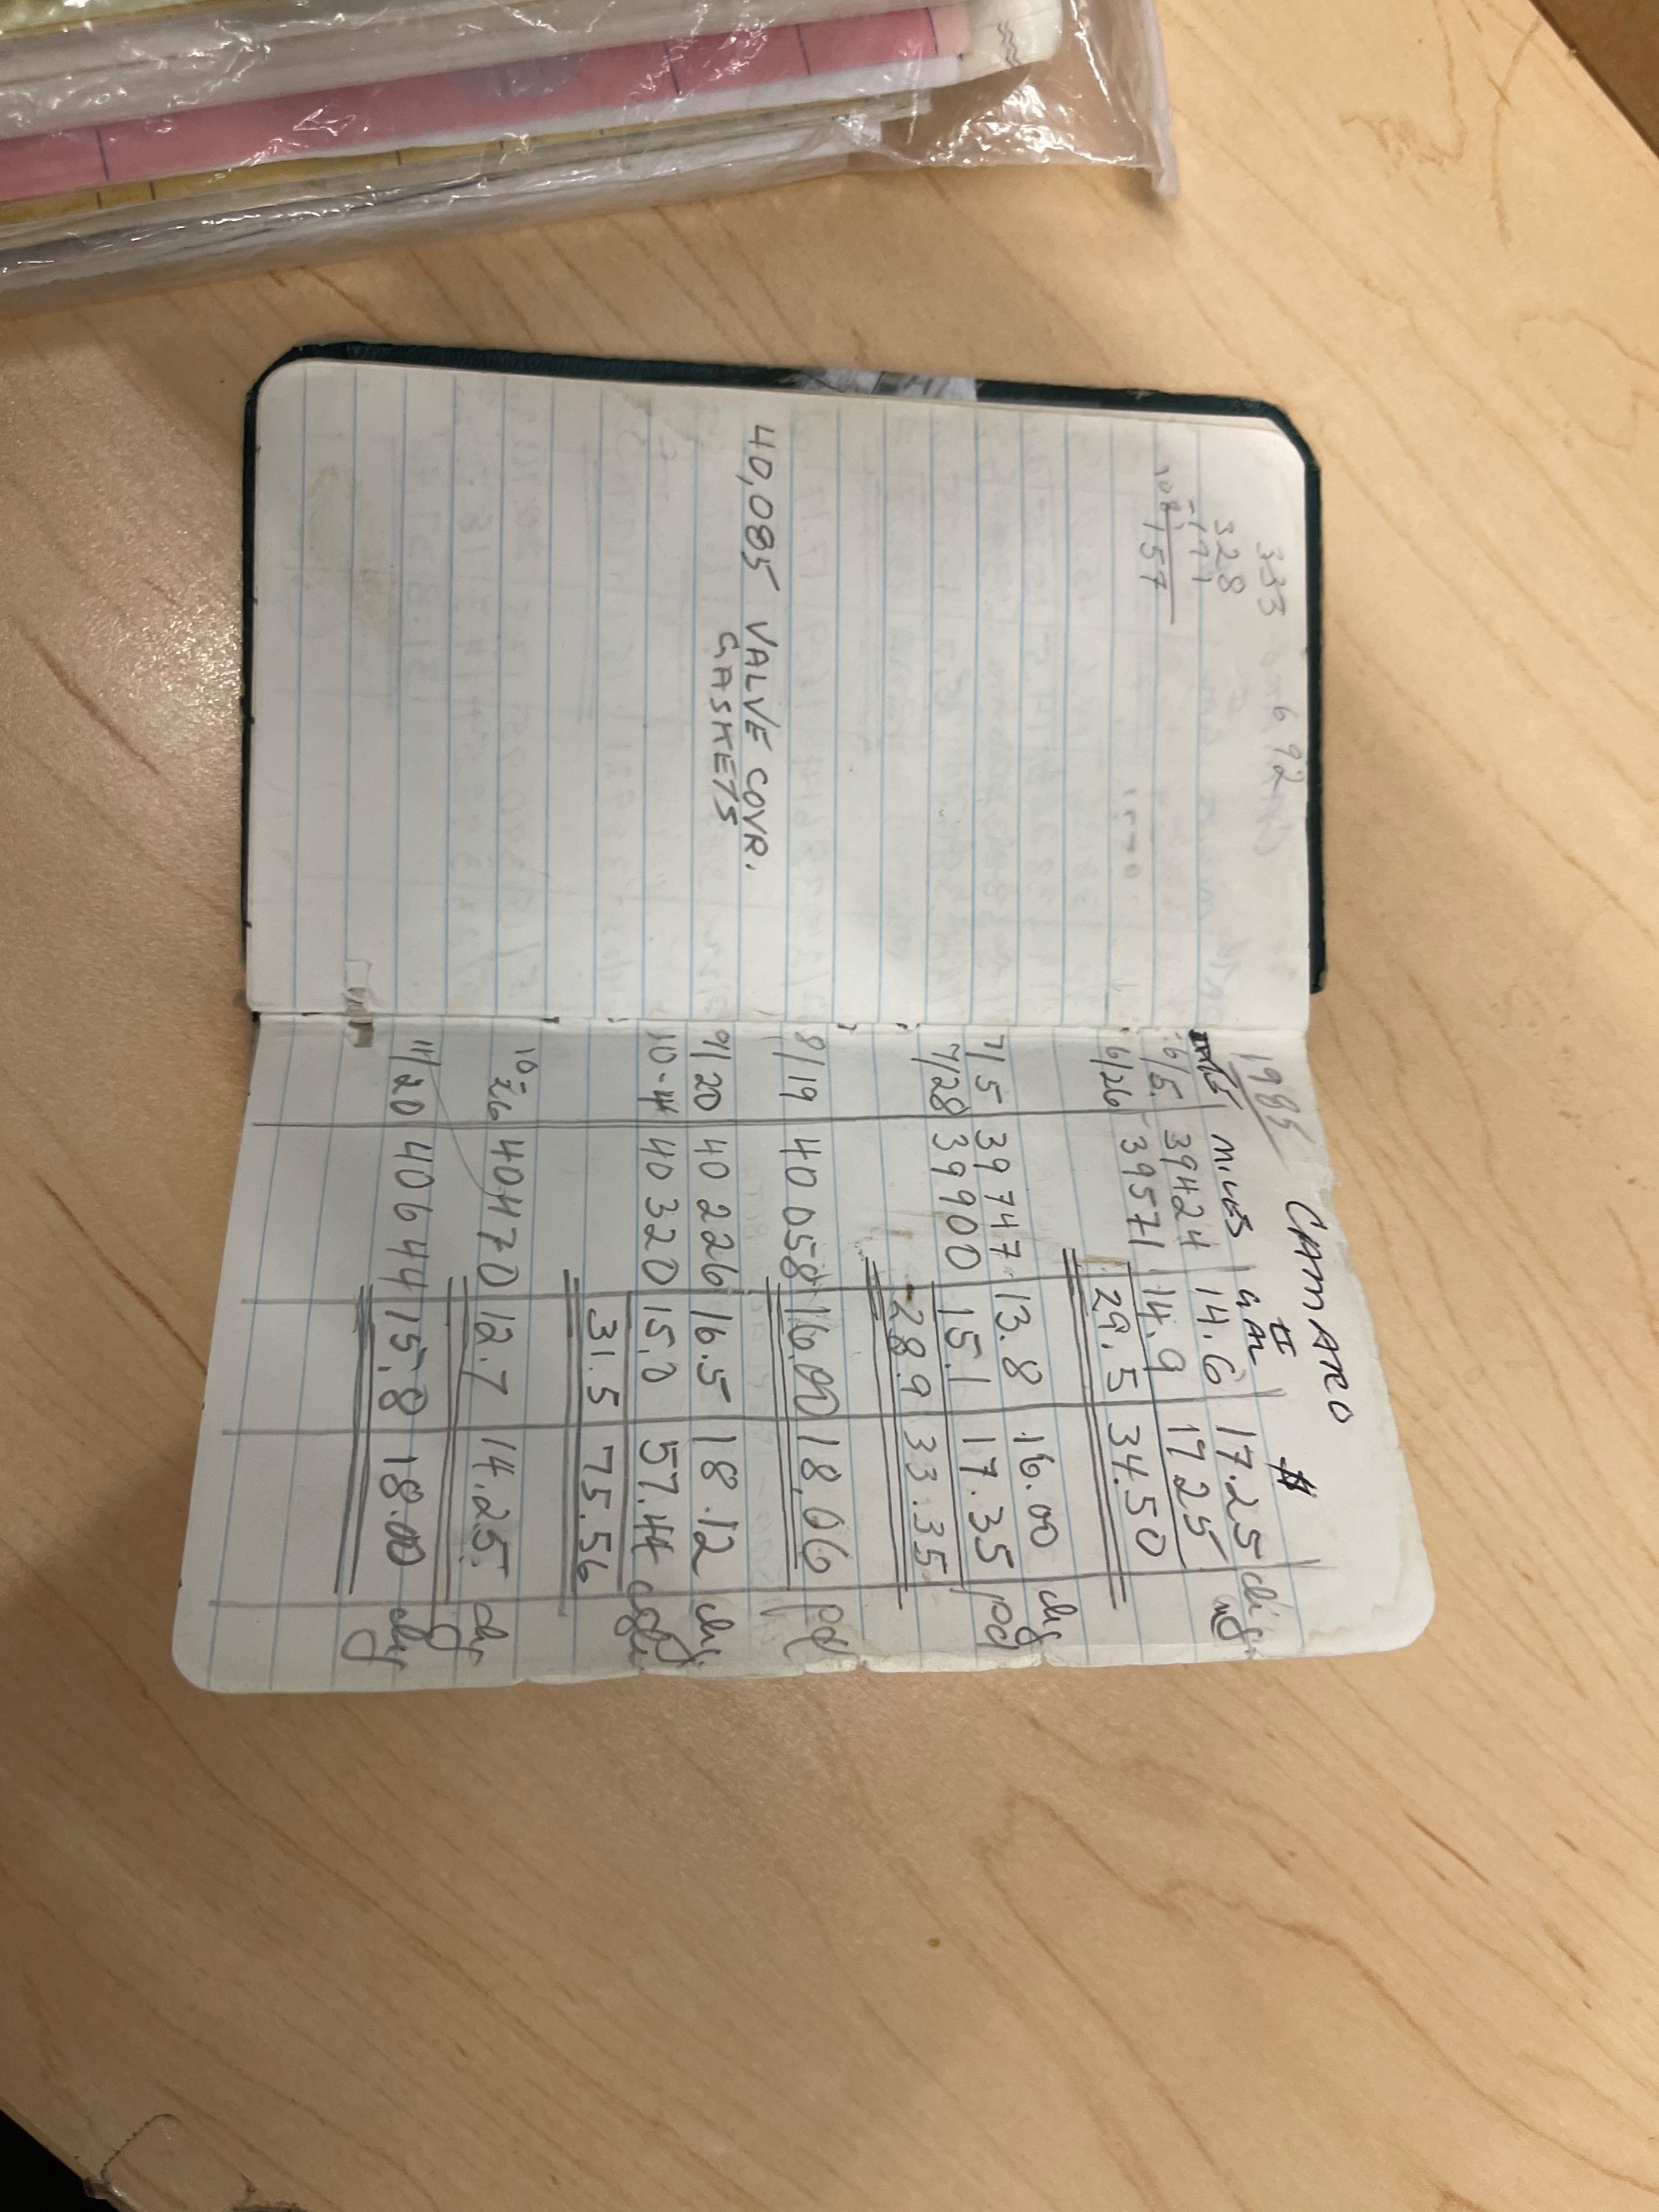 333
328
-171
108 157
40,085 VALVE COVR.
GASKETS
1985 CAMARO
MILES GAL $
6/5 39424 14.6 17.25 chg.
6/26 39571 14.9 17.25 chg.
29.5 34.50
7/5 39747 13.8 16.00 chg
7/28 39900 15.1 17.35 pd
28.9 33.35
8/19 40058 16.00 18.06 pd
9/20 40226 16.5 18.12 chg.
10-4 40320 15.0 57.44
31.5 75.56
10-26 40470 12.7 14.25 chg
11/20 40644 15.8 18.00 chg